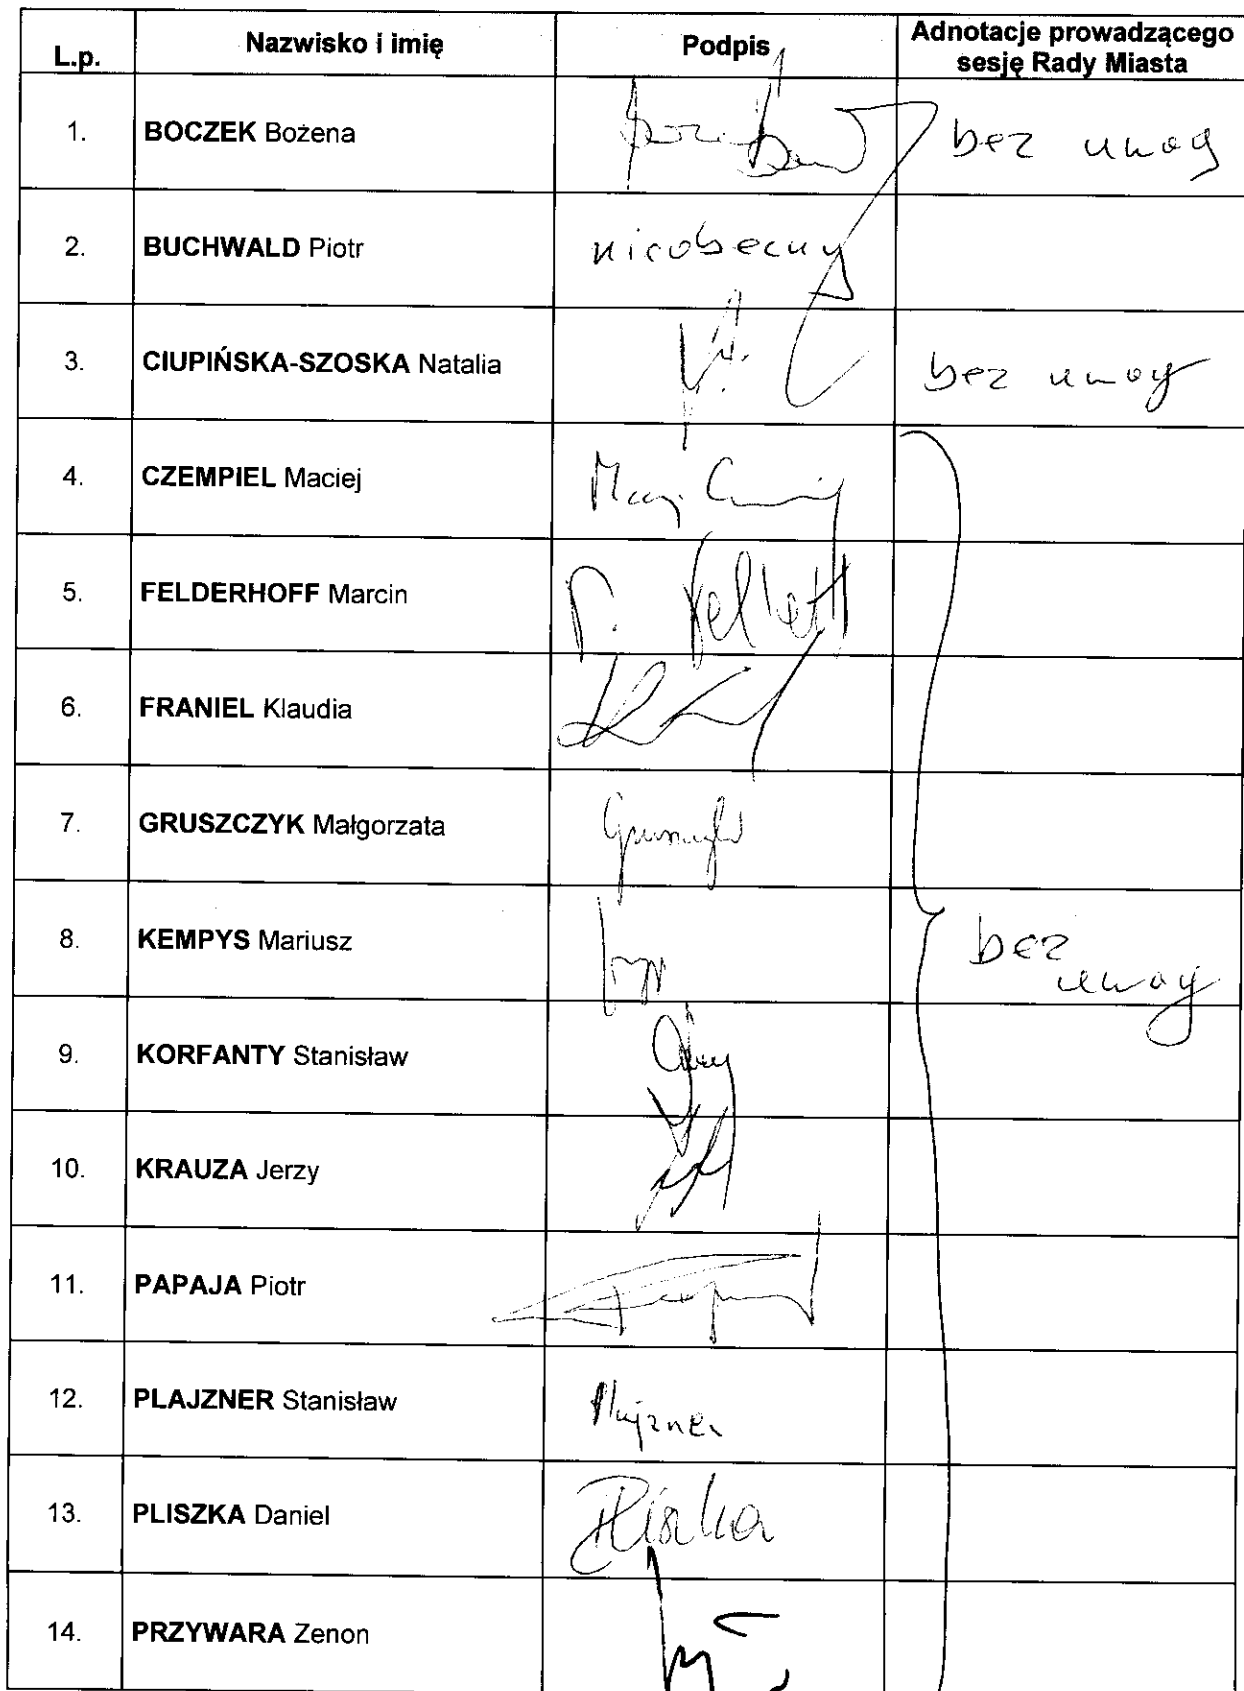 L.p. Nazwisko i imię Podpis Adnotacje prowadzącego
sesję Rady Miasta
1. BOCZEK Bożena bez uwag
2. BUCHWALD Piotr nieobecny
3. CIUPIŃSKA-SZOSKA Natalia bez uwag
4. CZEMPIEL Maciej
5. FELDERHOFF Marcin
6. FRANIEL Klaudia
7. GRUSZCZYK Małgorzata
8. KEMPYS Mariusz bez
uwag
9. KORFANTY Stanisław
10. KRAUZA Jerzy
11. PAPAJA Piotr
12. PLAJZNER Stanisław Plajzner
13. PLISZKA Daniel Pliszka
14. PRZYWARA Zenon